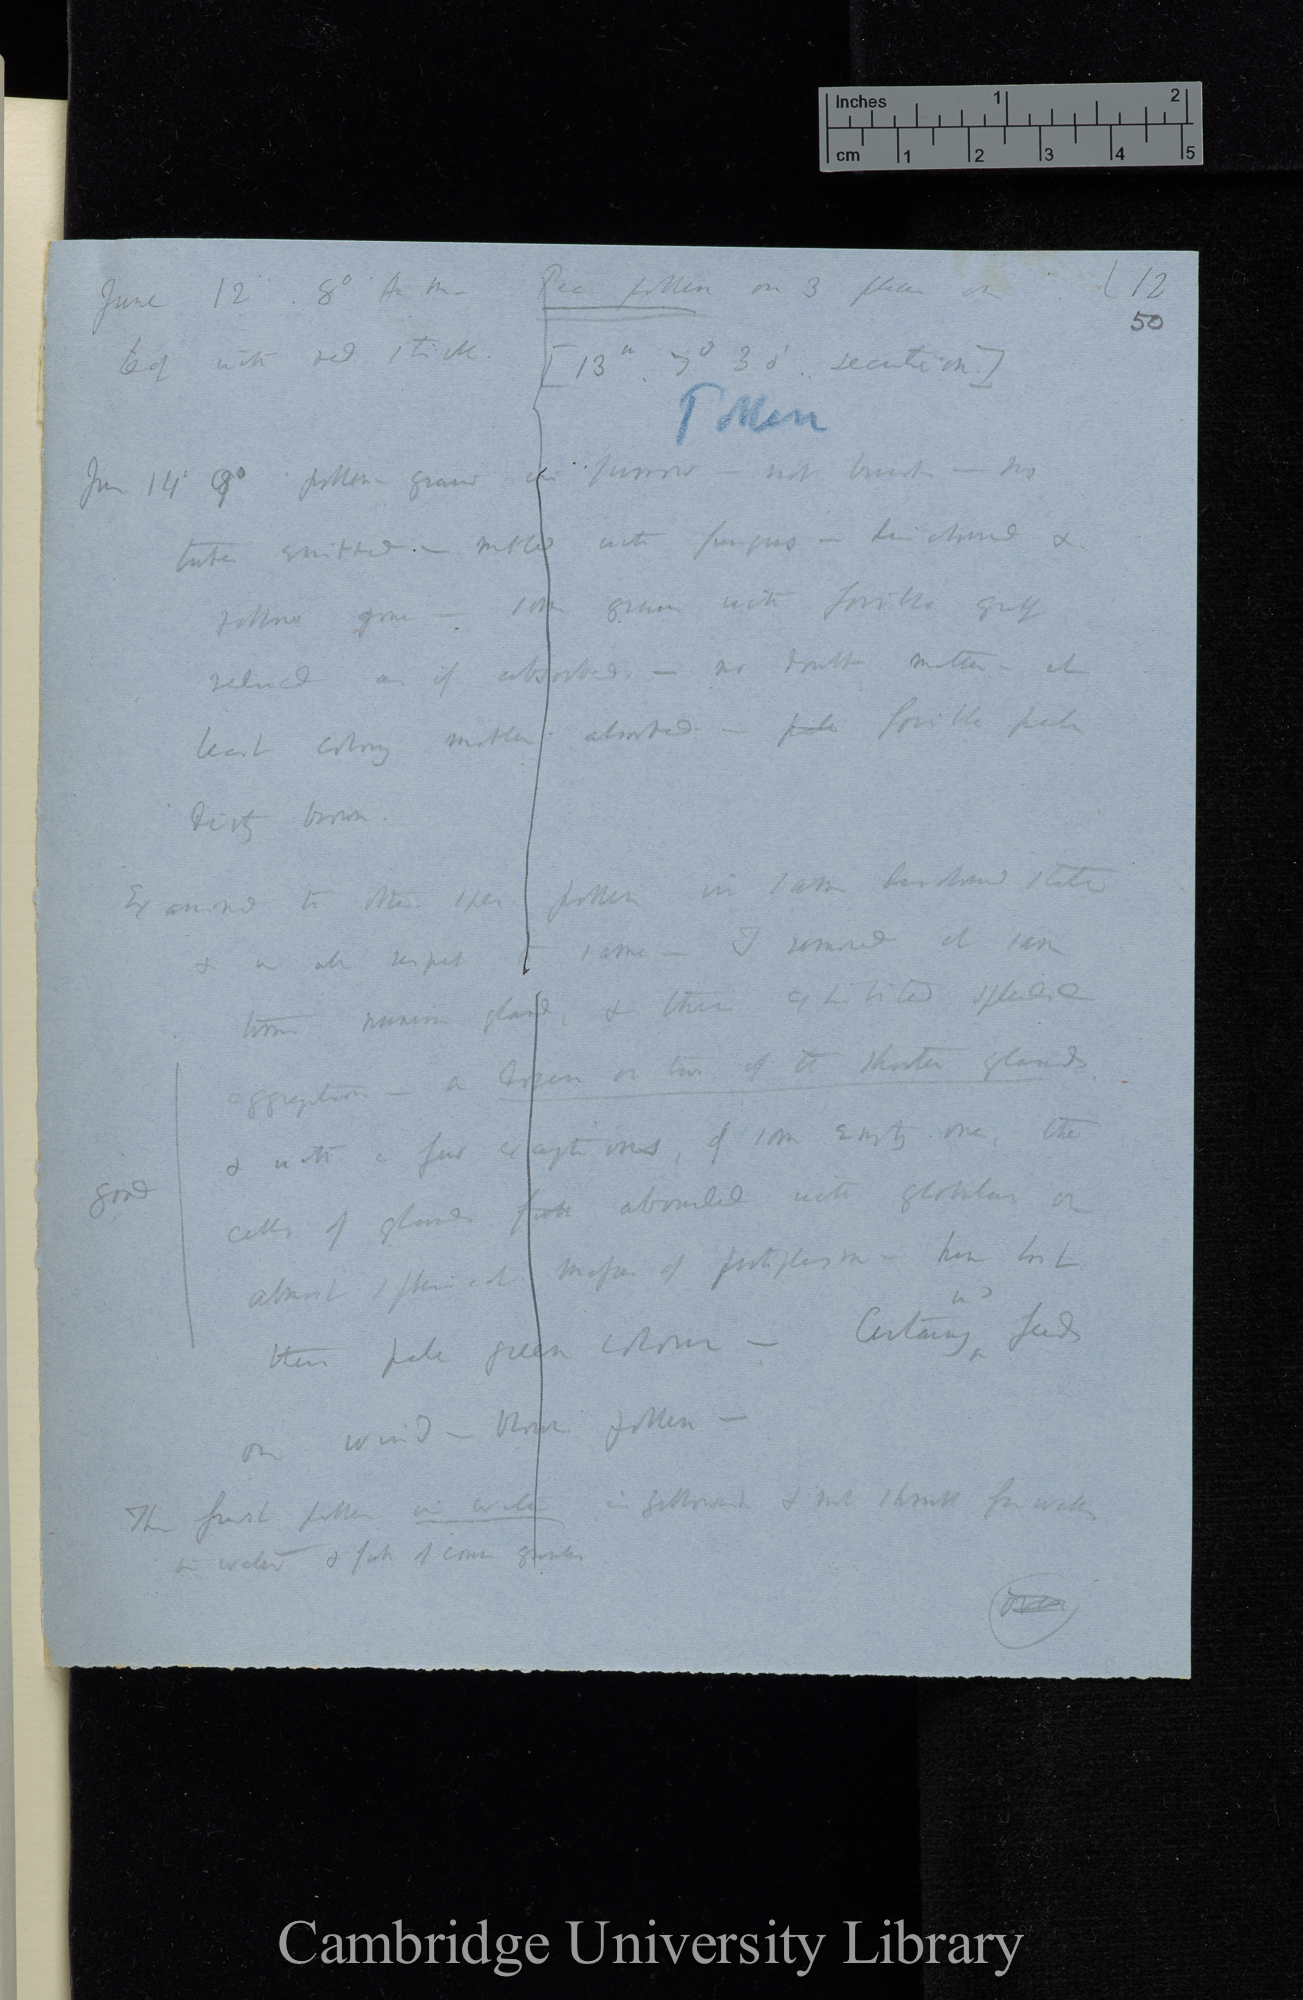 Inches 1 2
cm 1 2 3 4 5
June 12 8° A m. Pea pollen on 3 places on (12
50
leaf with red stick. [13th 7° 30' secretion]
Pollen
June 14 9° pollen-grains in furrow — not burst — no
tubes emitted. — matted with fungus — & 
yellow gone — some grains with fovilla greatly
reduced as if absorbed. — no doubt matter — at
least colouring matter absorbed — pale fovilla pale
dirty brown.
Examined the other pollen in same state
& in all respects same — I removed at same
time glands, & these exhibited splendid
aggregation — a dozen or two of the shorter glands
& with a few exceptions, of some empty one, the
good
cells of glands abounded with globular or
almost spherical masses of protoplasm — have lost
their pale green colour — Certainly feeds
on wind-blown pollen —
The fresh pollen in water is yellowish & not shrunk for weeks
in water & full of coarse granules
Cambridge University Library